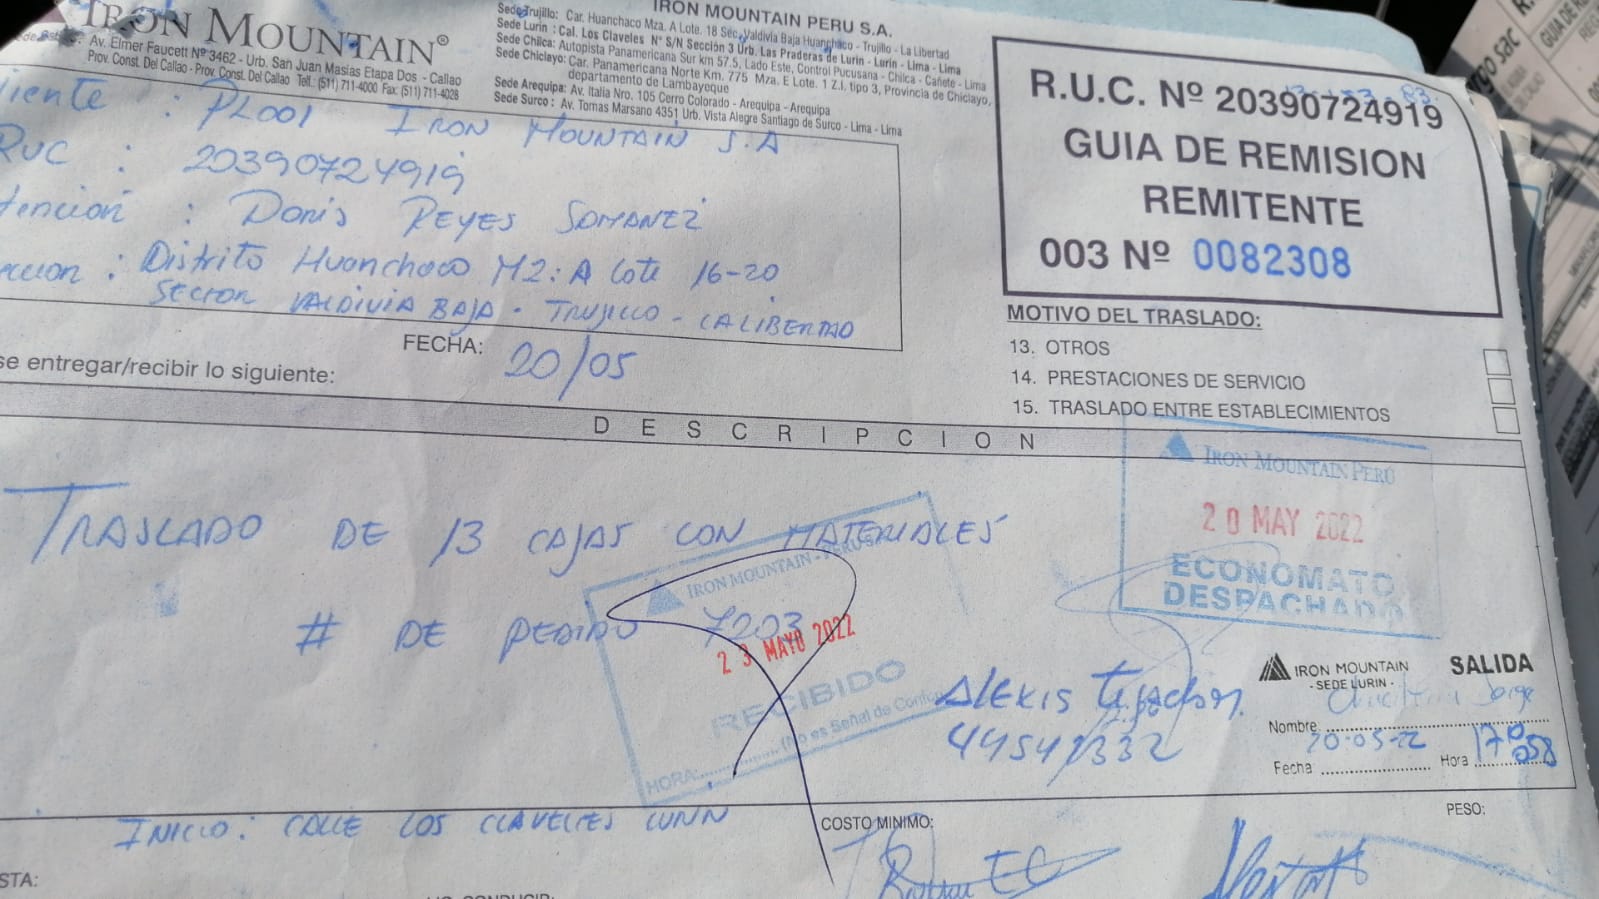 IRON MOUNTAIN®
Av. Elmer Faucett Nº 3462 - Urb. San Juan Masias Etapa Dos - Callao
Prov. Const. Del Callao - Prov. Const. Del Callao Telf.: (511) 711-4000 Fax: (511) 711-4028
IRON MOUNTAIN PERU S.A.
Sede Trujillo: Car. Huanchaco Mza. A Lote. 18 Sec. Valdivia Baja Huanchaco - Trujillo - La Libertad
Sede Lurin : Cal. Los Claveles N° S/N Sección 3 Urb. Las Praderas de Lurin - Lurin - Lima - Lima
Sede Chilca: Autopista Panamericana Sur km 57.5, Lado Este, Control Pucusana - Chilca - Cañete - Lima
Sede Chiclayo: Car. Panamericana Norte Km. 775 Mza. E Lote. 1 Z.I. tipo 3, Provincia de Chiclayo,
departamento de Lambayoque
Sede Arequipa: Av. Italia Nro. 105 Cerro Colorado - Arequipa - Arequipa
Sede Surco : Av. Tomas Marsano 4351 Urb. Vista Alegre Santiago de Surco - Lima - Lima
R.U.C. Nº 20390724919
GUIA DE REMISION
REMITENTE
003 Nº 0082308
iente : PL001 IRON MOUNTAIN S.A
RUC : 20390724919
tención : Doris REYES
ección : Distrito Huanchaco MZ: A Lote 16-20
SECTOR VALDIVIA BAJA - TRUJILLO - LA LIBERTAD
MOTIVO DEL TRASLADO:
13. OTROS
14. PRESTACIONES DE SERVICIO
15. TRASLADO ENTRE ESTABLECIMIENTOS
FECHA: 20/05
se entregar/recibir lo siguiente:
DESCRIPCION
IRON MOUNTAIN PERÚ
20 MAY 2022
ECONOMATO
DESPACHADO
TRASLADO DE 13 CAJAS CON MATERIALES
# DE PEDIDO 7203
IRON MOUNTAIN - PERU S.A.
23 MAYO 2022
RECIBIDO
(No es Señal de
HORA:
ALEXIS
IRON MOUNTAIN
- SEDE LURIN -
SALIDA
Nombre
Fecha 20-05-22 Hora
INICIO: CALLE LOS CLAVELES LURIN
COSTO MINIMO:
PESO:
STA:
CONDUCIR: